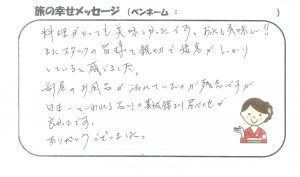 旅の幸せメッセージ (ペンネーム： )
料理がとっても美味しかったです。お水も美味しい!!
またスタッフの皆様も親切で接客がしっかり
していると感じました。
部屋のお風呂が汚れていたのが残念ですが
日本一といわれる石川の
良かったです。
ありがとうございました。